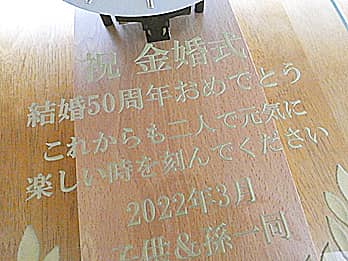 祝 金婚式
結婚50周年おめでとう
これからも二人で元気に
楽しい時を刻んでください
2022年3月
&孫一同